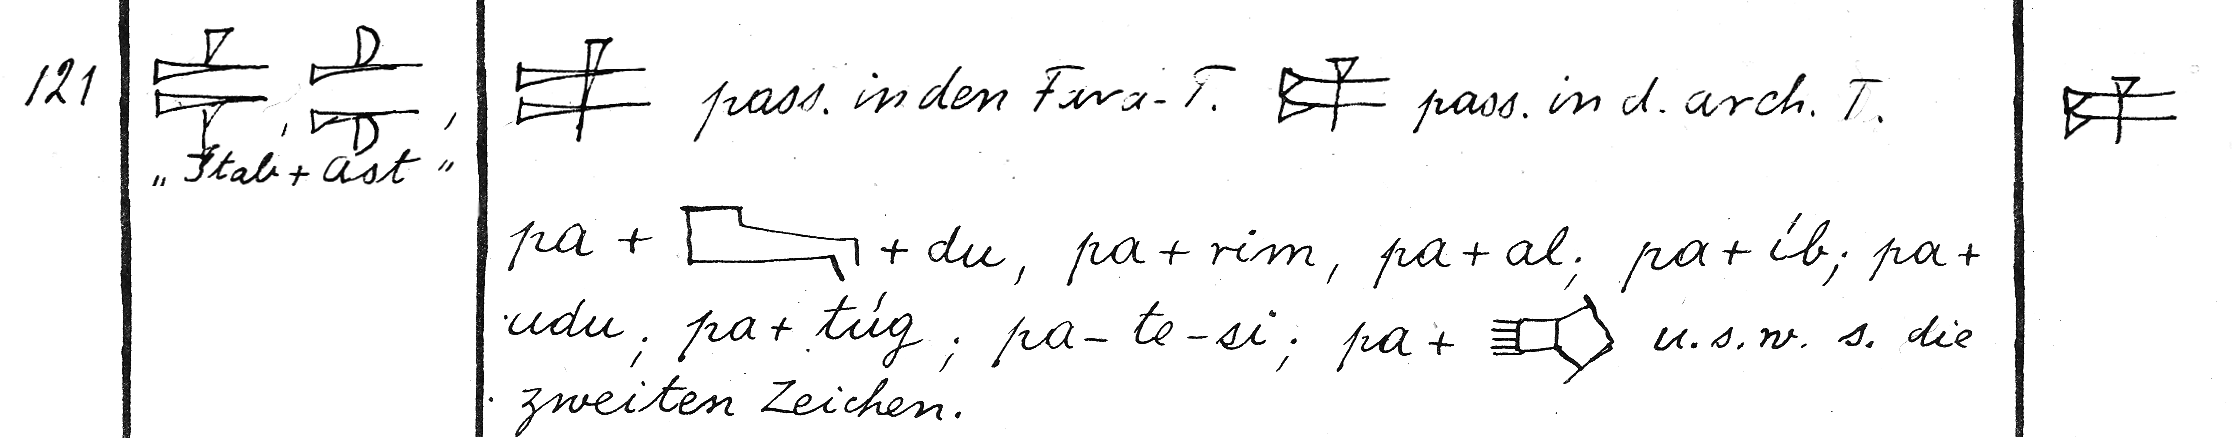 121
„Stab + Ast“
pass. in den Fara-T. pass. in d. arch. T.
pa + + du, pa + rim, pa + al; pa + íb; pa +
udu; pa + túg; pa-te-si; pa + u.s.w. s. die
zweiten Zeichen.